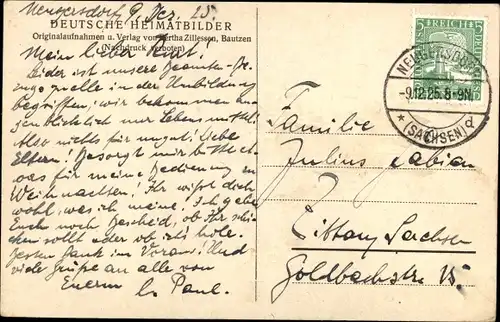 Neugersdorf, 9. Dez. 25.
DEUTSCHE HEIMATBILDER
Originalaufnahmen u. Verlag von Bertha Zillessen, Bautzen
(Nachdruck verboten)
Mein lieber Kurt!
Leider ist unsere Beamten-
quelle in der Umbildung
begriffen; wir bekommen au-
genblicklich nur Lebensmittel.
Also nichts für ungut! Liebe
Eltern! Besorgt mir bitte et-
was für meine Bedienung zu
Weihnachten! Ihr wißt doch
wohl, was ich meine. Ich gebe
Euch noch Bescheid, ob Ihr's schi-
cken sollt oder ob ich's hole.
Besten Dank im Voraus! Und
viele Grüße an alle von
Eurem lb. Paul.
DEUTSCHES REICH
NEUGERSDORF
-9.12.25. 8-9N.
* (SACHSEN) d
Familie
Julius Fabian
Zittau, Sachsen
Goldbachstr. 15.